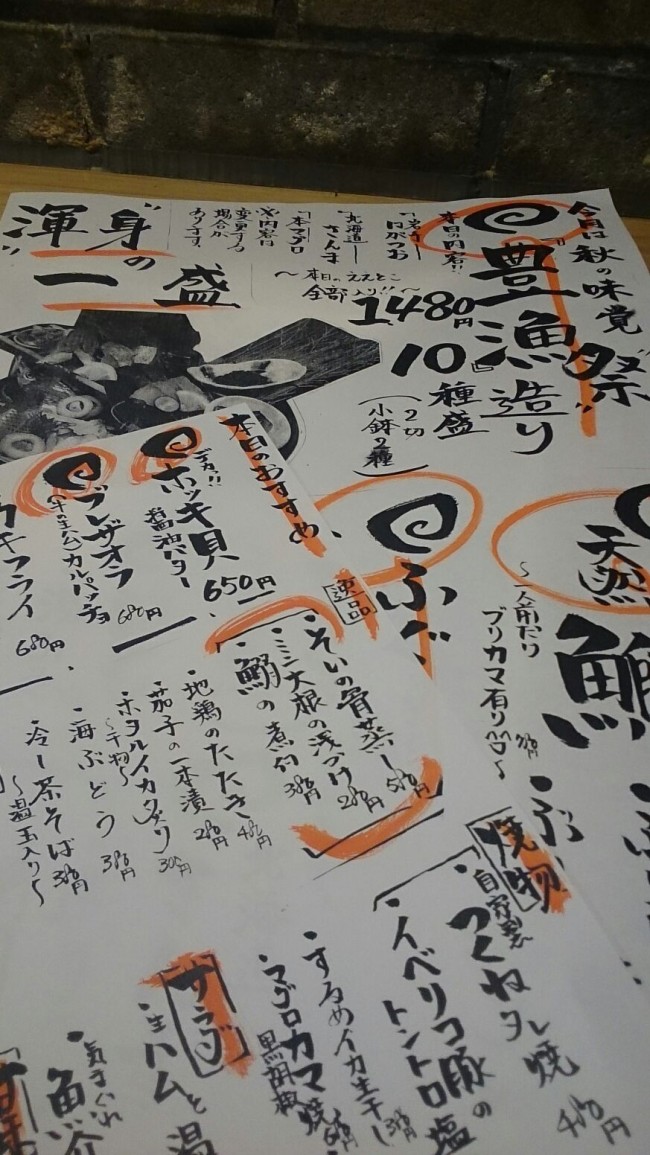 今月は秋の味覚
『豊漁祭』造り
10種盛
(2切
小鉢2種)
1480円
本日の内容!!
「北海道
さんま
「本マグロ
※内容は
変更する
場合が
あります。
〜本日のええとこ
全部入り!!〜
"渾身"の
一盛
本日のおすすめ
デカッ!!
ホッキ貝
醤油バター
650円
ブレザオラ
(牛の生ハム)カルパッチョ
680円
カキフライ
680円
天然
鰤
〜一人前だり
ブリカマ有り
ふぐ
逸品
・そいの骨蒸し
580円
・ミニ大根の浅づけ
280円
・鰯の煮付
380円
・地鶏のたたき
480円
・茄子の一本漬
280円
・ホタルイカ炙り
〜干物〜
300円
・海ぶどう
380円
・冷し茶そば
〜温玉入り〜
380円
焼物
・自家製
つくねタレ焼
480円
・イベリコ豚の
トントロ塩
・するめイカ生干し
・マグロカマ焼
黒胡椒
サラダ
・生ハムと温
・気まぐれ
魚介